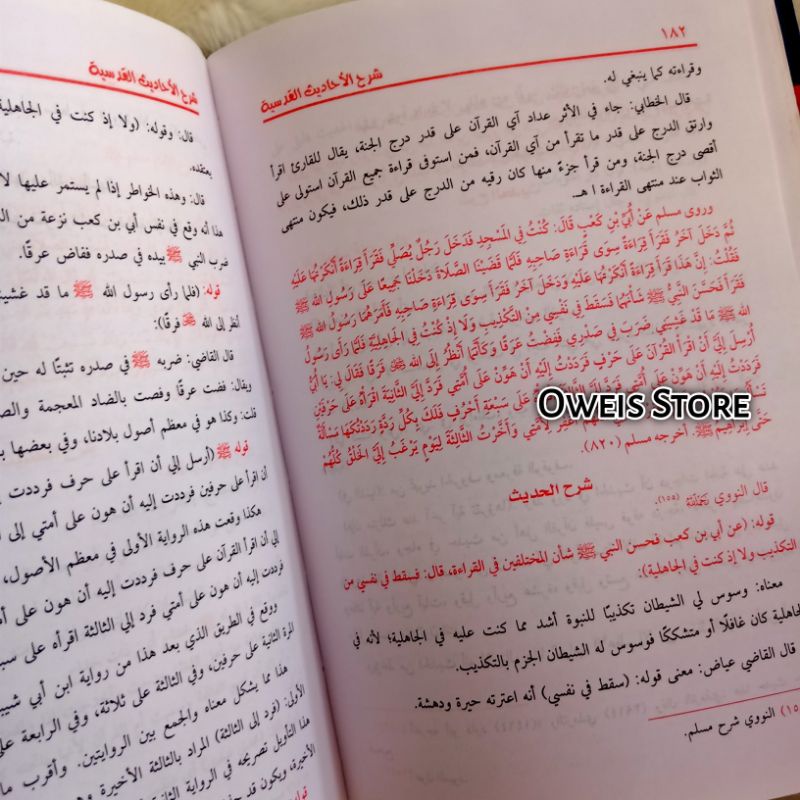 ١٨٢
شرح الأحاديث القدسية
وقراءته كما ينبغي له.
قال الخطابي: جاء في الأثر عداد آي القرآن على قدر درج الجنة، يقال للقارئ اقرأ
وارتق الدرج على قدر ما تقرأ من آي القرآن، فمن استوفى قراءة جميع القرآن استولى على
أقصى درج الجنة، ومن قرأ جزءً منها كان رقيه من الدرج على قدر ذلك، فيكون منتهى
الثواب عند منتهى القراءة اهـ.
وروى مسلم عَنْ أُبَيِّ بْنِ كَعْبٍ قَالَ: كُنْتُ فِي الْمَسْجِدِ فَدَخَلَ رَجُلٌ يُصَلِّي فَقَرَأَ قِرَاءَةً أَنْكَرْتُهَا عَلَيْهِ
ثُمَّ دَخَلَ آخَرُ فَقَرَأَ قِرَاءَةً سِوَى قَرَاءَةِ صَاحِبِهِ فَلَمَّا قَضَيْنَا الصَّلَاةَ دَخَلْنَا جَمِيعًا عَلَى رَسُولِ الله ﷺ
فَقُلْتُ: إِنَّ هَذَا قَرَأَ قِرَاءَةً أَنْكَرْتُهَا عَلَيْهِ وَدَخَلَ آخَرُ فَقَرَأَ سِوَى قِرَاءَةِ صَاحِبِهِ فَأَمَرَهُمَا رَسُولُ الله ﷺ
فَقَرَآ فَحَسَّنَ النَّبِيُّ ﷺ شَأْنَهُمَا فَسَقَطَ فِي نَفْسِي مِنْ التَّكْذِيبِ وَلَا إِذْ كُنْتُ فِي الْجَاهِلِيَّةِ فَلَمَّا رَأَى رَسُولُ
الله ﷺ مَا قَدْ غَشِيَنِي ضَرَبَ فِي صَدْرِي فَفِضْتُ عَرَقًا وَكَأَنَّمَا أَنْظُرُ إِلَى الله ﷻ فَرَقًا فَقَالَ لِي: يَا أُبَيُّ
أُرْسِلَ إِلَيَّ أَنْ اقْرَأْ الْقُرْآنَ عَلَى حَرْفٍ فَرَدَدْتُ إِلَيْهِ أَنْ هَوِّنْ عَلَى أُمَّتِي فَرَدَّ إِلَيَّ الثَّانِيَةَ اقْرَأْهُ عَلَى حَرْفَيْنِ
فَرَدَدْتُ إِلَيْهِ أَنْ هَوِّنْ عَلَى أُمَّتِي فَرَدَّ إِلَيَّ الثَّالِثَةَ عَلَى سَبْعَةِ أَحْرُفٍ فَلَكَ بِكُلِّ رَدَّةٍ رَدَدْتُكَهَا مَسْأَلَةٌ
اغْفِرْ لِأُمَّتِي وَأَخَّرْتُ الثَّالِثَةَ لِيَوْمٍ يَرْغَبُ إِلَيَّ الْخَلْقُ كُلُّهُمْ
حَتَّى إِبْرَاهِيمُ ﷺ. أخرجه مسلم (٨٢٠).
OWEIS STORE
شرح الحديث
قال النووي رَحِمَهُ اللهُ (١٥٥).
قوله: (عن أبي بن كعب فحسن النبي ﷺ شأن المختلفين في القراءة، قال: فسقط في نفسي من
التكذيب ولا إذ كنت في الجاهلية):
معناه: وسوس لي الشيطان تكذيبًا للنبوة أشد مما كنت عليه في الجاهلية؛ لأنه في
كان غافلًا أو متشككًا فوسوس له الشيطان الجزم بالتكذيب.
قال القاضي عياض: معنى قوله: (سقط في نفسي) أنه اعترته حيرة ودهشة.
النووي شرح مسلم.
شرح الأحاديث القدسية
قال: وقوله: (ولا إذ كنت في الجاهلية
يعتقده.
قال: وهذه الخواطر إذا لم يستمر عليها لا
هذا أنه وقع في نفس أبي بن كعب نزعة من
ضرب النبي ﷺ بيده في صدره ففاض عرقًا.
قوله: (فلما رأى رسول الله ﷺ ما قد غشي
أنظر إلى الله ﷻ فرقًا):
قال القاضي: ضربه ﷺ في صدره تثبتًا له حين
ويقال: فضت عرقًا وفصت بالضاد المعجمة
قلت: وكذا هو في معظم أصول بلادنا، وفي بعضها
قوله ﷺ (أرسل إلي أن اقرأ على حرف فرددت
أن اقرأ على حرفين فرددت إليه أن هون على أمتي
هكذا وقعت هذه الرواية الأولى في معظم الأصول،
إلي أن اقرأ القرآن على حرف فرددت إليه أن هون على
فرددت إليه أن هون على أمتي فرد إلي الثالثة اقرأه على
ووقع في الطريق الذي بعد هذا من رواية ابن أبي
المرة الثانية على حرفين، وفي الثالثة على ثلاثة، وفي الرابعة
هذا مما يشكل معناه والجمع بين الروايتين. وأقرب
الأولى: (فرد إلى الثالثة) المراد بالثالثة الأخيرة
هذا التأويل تصريحه في الرواية الثانية
الأخيرة، ويكون قد